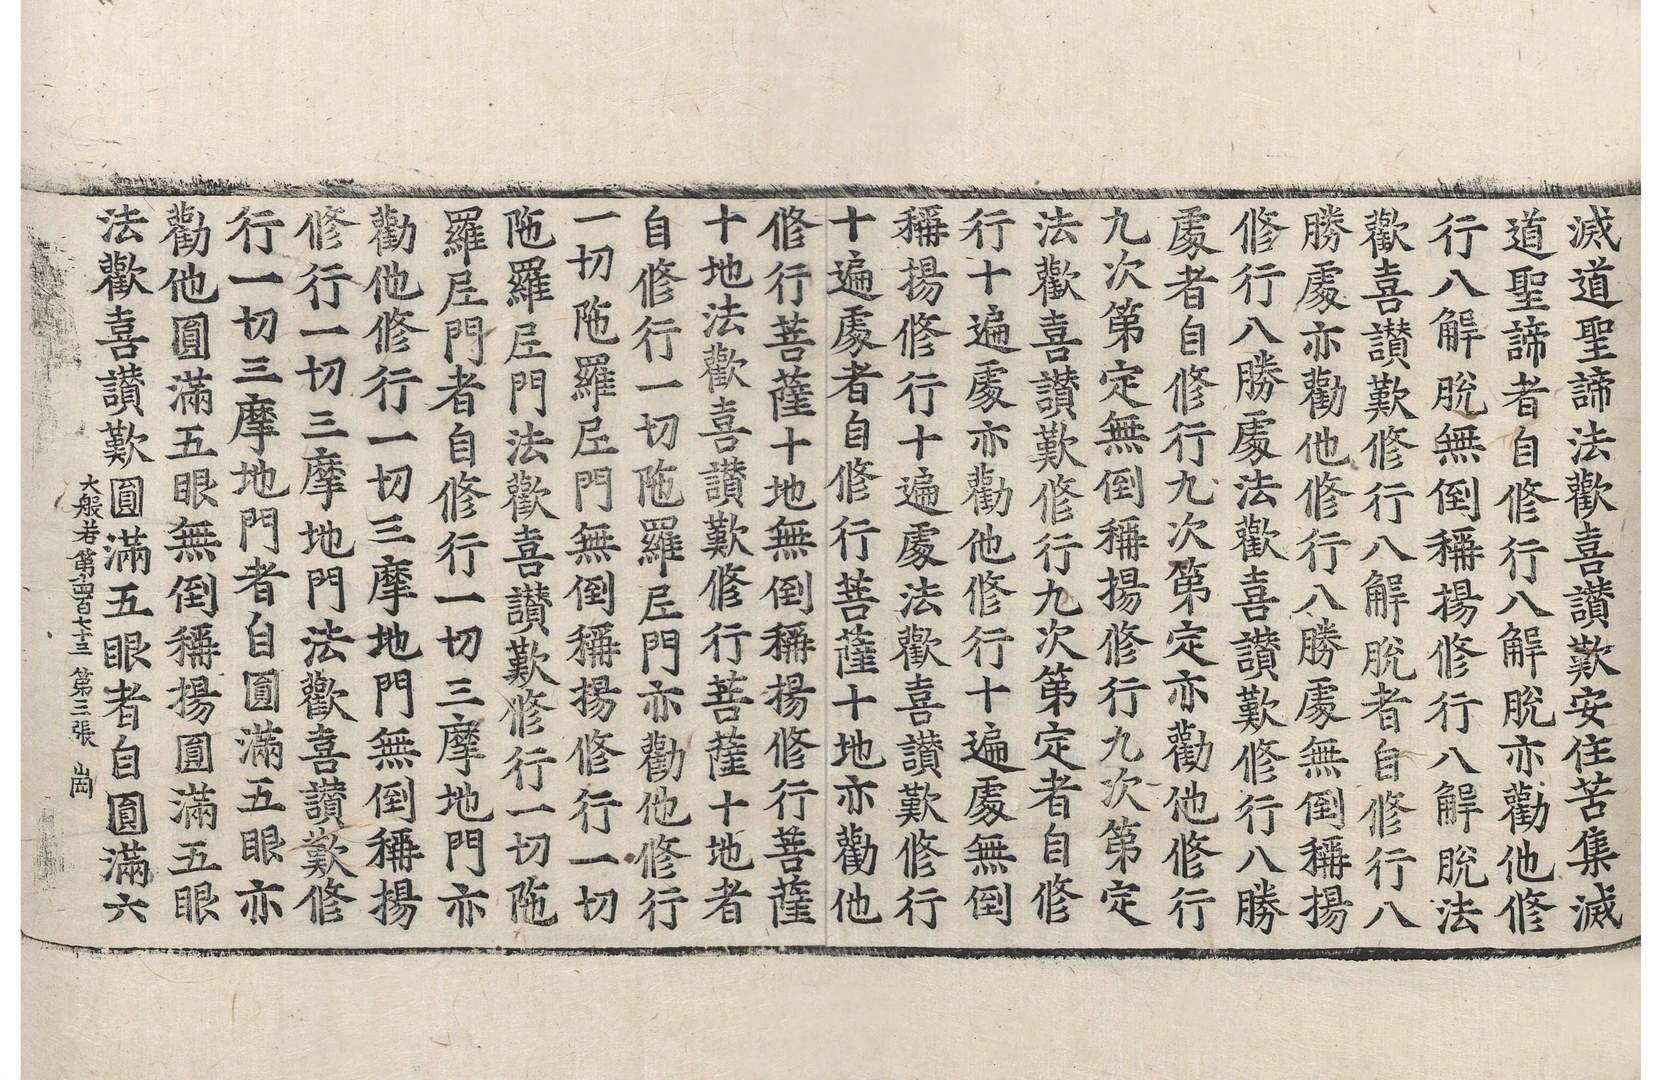 滅道聖諦法歡喜讚歎安住苦集滅
道聖諦者自修行八解脫亦勸他修
行八解脫無倒稱揚修行八解脫法
歡喜讚歎修行八解脫者自修行八
勝處亦勸他修行八勝處無倒稱揚
修行八勝處法歡喜讚歎修行八勝
處者自修行九次第定亦勸他修行
九次第定無倒稱揚修行九次第定
法歡喜讚歎修行九次第定者自修
行十遍處亦勸他修行十遍處無倒
稱揚修行十遍處法歡喜讚歎修行
十遍處者自修行菩薩十地亦勸他
修行菩薩十地無倒稱揚修行菩薩
十地法歡喜讚歎修行菩薩十地者
自修行一切陁羅尼門亦勸他修行
一切陁羅尼門無倒稱揚修行一切
陁羅尼門法歡喜讚歎修行一切陁
羅尼門者自修行一切三摩地門亦
勸他修行一切三摩地門無倒稱揚
修行一切三摩地門法歡喜讚歎修
行一切三摩地門者自圓滿五眼亦
勸他圓滿五眼無倒稱揚圓滿五眼
法歡喜讚歎圓滿五眼者自圓滿六
大般若第四百七十三 第三張 崗